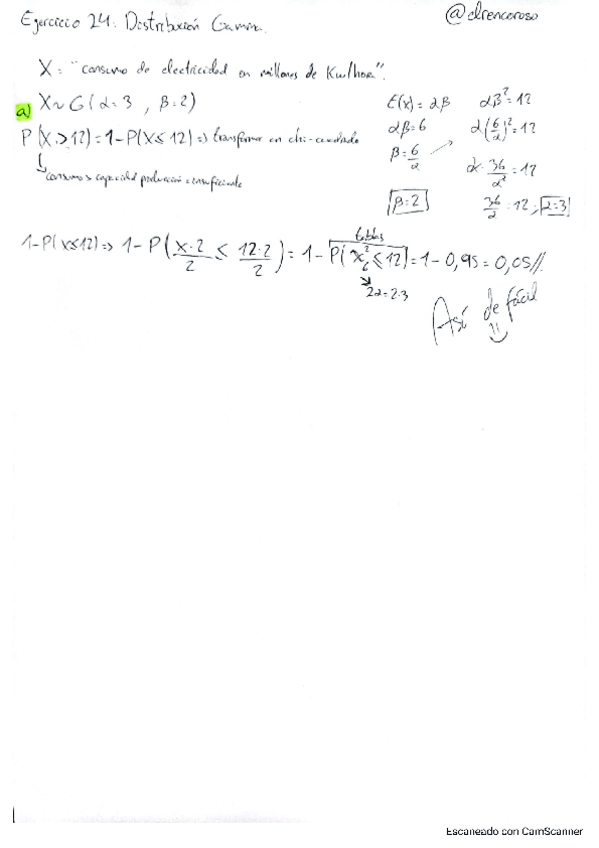 Ejercicio 24: Distribución Gamma.
@elrencoroso
X = "consumo de electricidad en millones de Kw/hora".
a) X ~ G(α=3, β=2)
P(X>12) = 1-P(X≤12) => transformar en chi-cuadrado
consumo > capacidad producción = insuficiente
E(x) = αβ
αβ = 6
β = 6/α
β=2
αβ² = 12
α(6/α)² = 12
α · 36/α² = 12
36/α = 12; α=3
1-P(X≤12) => 1-P(X·2/2 ≤ 12·2/2) = 1-P(χ²₆ ≤ 12) = 1-0,95 = 0,05//
tablas
2α=2·3
Así de fácil
Escaneado con CamScanner